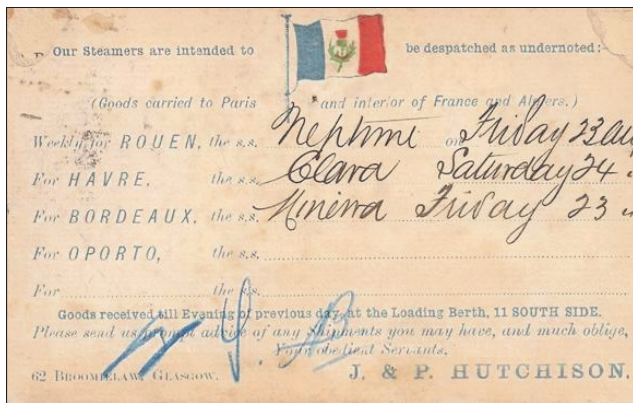 Our Steamers are intended to be despatched as undernoted:-
(Goods carried to Paris and interior of France and Algiers.)
Weekly for ROUEN, the s.s. Neptune on Friday 23 Aug
For HAVRE, the s.s. Clara Saturday 24
For BORDEAUX, the s.s. Minerva Friday 23
For OPORTO, the s.s.
For the s.s.
Goods received till Evening of previous day, at the Loading Berth, 11 SOUTH SIDE.
Please send us prompt advice of any Shipments you may have, and much oblige,
Your obedient Servants,
62 BROOMIELAW, GLASGOW. J. & P. HUTCHISON.